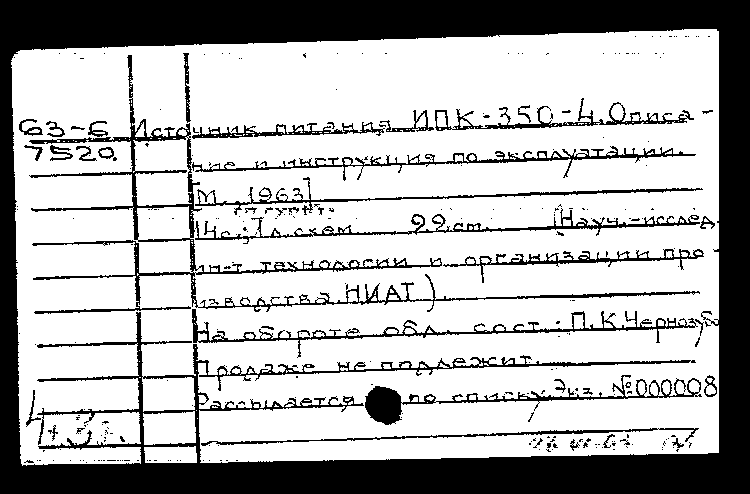 63-6 Источник питания ИПК-350-4. Описа-
7520 ние и инструкция по эксплуатации.
[М., 1963]
14с.; 1л. схем 22 см. (Науч.-исслед.
ин-т технологии и организации про-
изводства НИАТ).
На обороте обл. сост.: П.К. Чернозубо
Продаже не подлежит.
Рассылается по списку. Экз. №000008